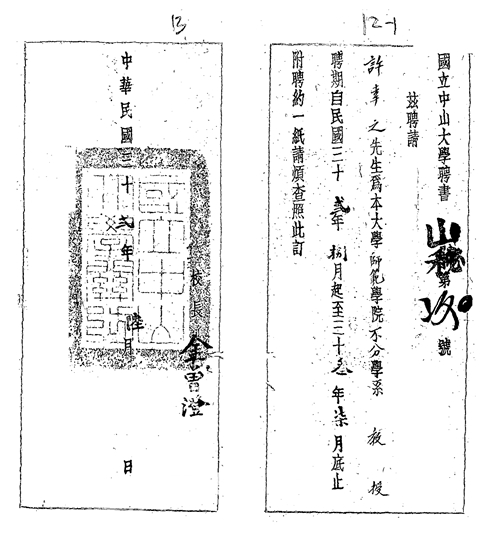 12-1
國立中山大學聘書 山 第 號
茲聘請
許幸之先生為本大學師範學院不分學系 教授
聘期自民國三十貳年捌月起至三十叁年柒月底止
附聘約一紙請煩查照此訂
13
代校長 金曾澄
國立中山大
中華民國三十貳年陸月 日